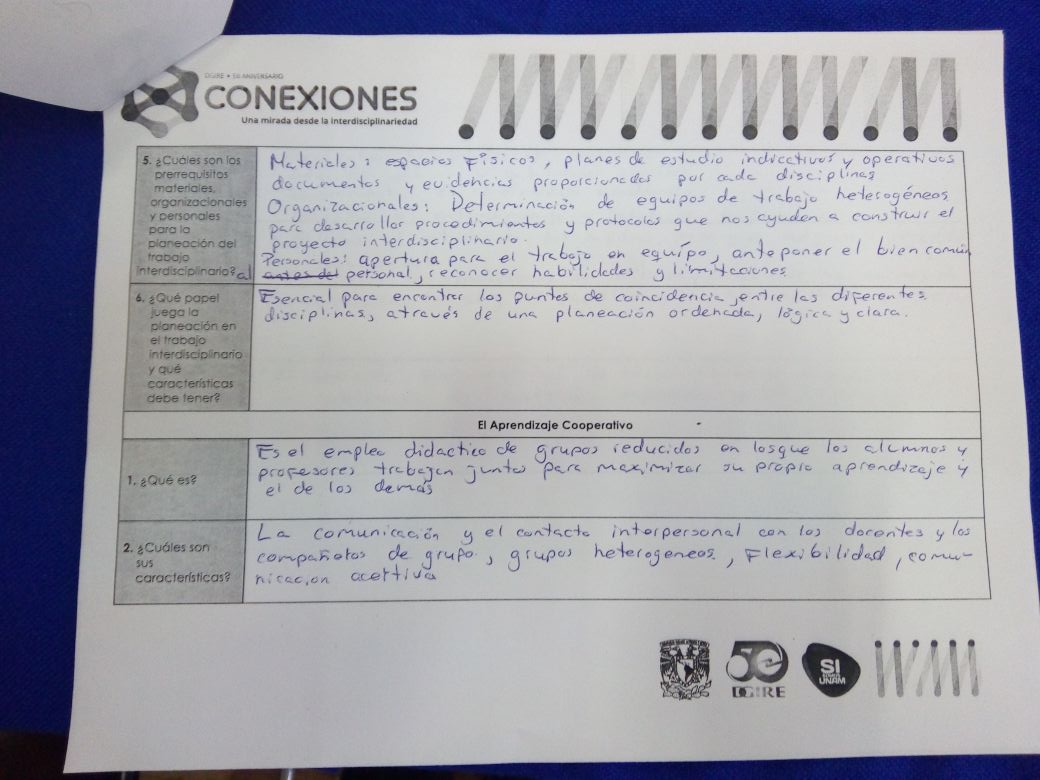 DGIRE • 50 ANIVERSARIO
CONEXIONES
Una mirada desde la interdisciplinariedad
5. ¿Cuáles son los
prerrequisitos
materiales,
organizacionales
y personales
para la
planeación del
trabajo
interdisciplinario?
Materiales: espacios Físicos, planes de estudio indicativos y operativos
documentos y evidencias proporcionados por cada disciplina
Organizacionales: Determinación de equipos de trabajo heterogéneos
para desarrollar procedimientos y protocolos que nos ayuden a construir el
proyecto interdisciplinario.
Personales: apertura para el trabajo en equipo, anteponer el bien común
al antes del personal, reconocer habilidades y limitaciones
6. ¿Qué papel
juega la
planeación en
el trabajo
interdisciplinario
y qué
características
debe tener?
Esencial para encontrar los puntos de coincidencia, entre las diferentes
disciplinas, através de una planeación ordenada, lógica y clara.
El Aprendizaje Cooperativo
1. ¿Qué es?
Es el empleo didactico de grupos reducidos en losque los alumnos y
profesores trabajan juntos para maximizar su propio aprendizaje y
el de los demás
2. ¿Cuáles son
sus
características?
La comunicación y el contacto interpersonal con los docentes y los
compañeros de grupo, grupos heterogeneos, Flexibilidad, comu-
nicacion acertiva
50
DGIRE
SI
SOMOS
UNAM